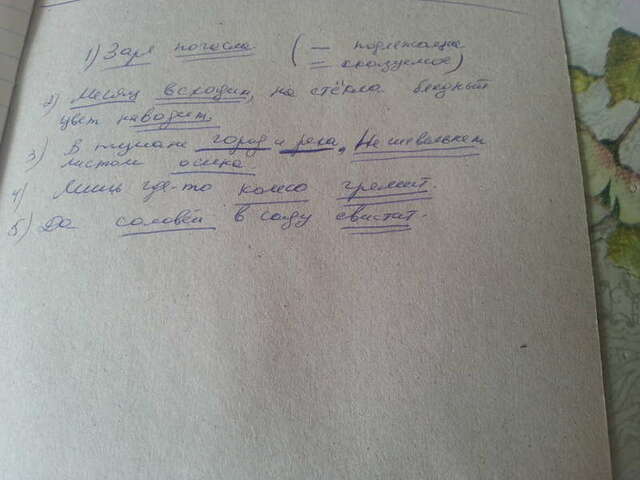 1) Заря погасла ( — подлежащие
= сказуемое)
2) Месяц всходит, на стёкла бледный
цвет наводит.
3) В тумане город и река. Не шевельнет
листом осина
4) Лишь где-то колесо гремит.
5) Да соловей в саду свистит.